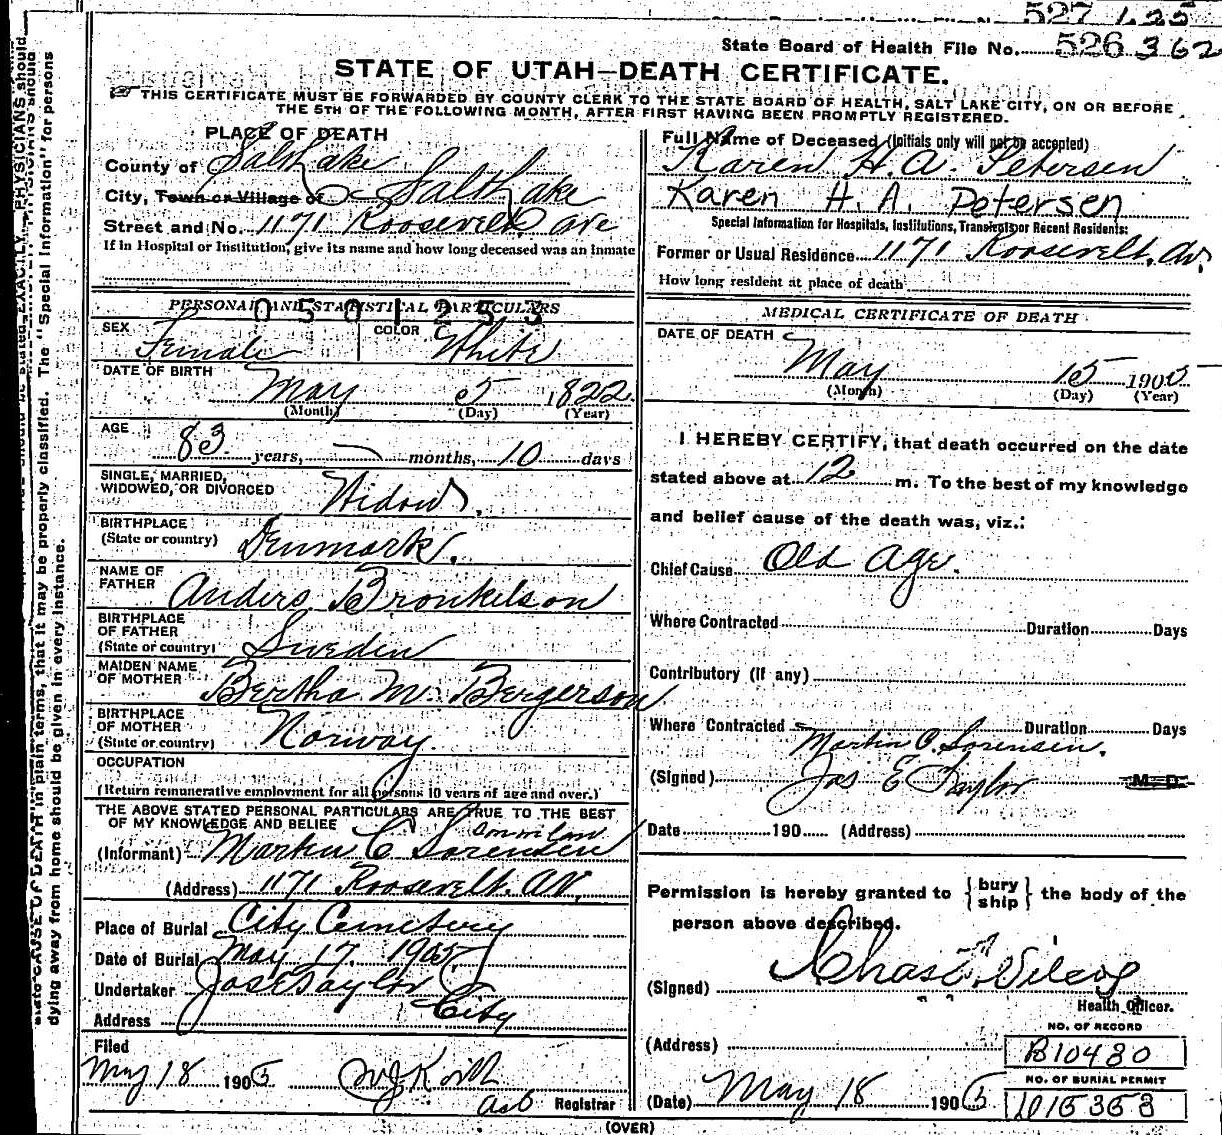 527
State Board of Health File No. 526 362
STATE OF UTAH—DEATH CERTIFICATE.
THIS CERTIFICATE MUST BE FORWARDED BY COUNTY CLERK TO THE STATE BOARD OF HEALTH, SALT LAKE CITY, ON OR BEFORE
THE 5TH OF THE FOLLOWING MONTH, AFTER FIRST HAVING BEEN PROMPTLY REGISTERED.
PLACE OF DEATH
County of Salt Lake
City, Town or Village of Salt Lake
Street and No. 1171 Roosevelt Ave
If in Hospital or Institution, give its name and how long deceased was an inmate
PERSONAL AND STATISTICAL PARTICULARS
0501253
SEX Female COLOR White
DATE OF BIRTH May 5 1822
(Month) (Day) (Year)
AGE 83 years, — months, 10 days
SINGLE, MARRIED,
WIDOWED, OR DIVORCED Widow.
BIRTHPLACE
(State or country) Denmark.
NAME OF
FATHER Anders Bronkelson
BIRTHPLACE
OF FATHER
(State or country) Sweden
MAIDEN NAME
OF MOTHER Bertha M. Bergerson
BIRTHPLACE
OF MOTHER
(State or country) Norway
OCCUPATION
(Return remunerative employment for all persons 10 years of age and over.)
THE ABOVE STATED PERSONAL PARTICULARS ARE TRUE TO THE BEST
OF MY KNOWLEDGE AND BELIEF
son in law
(Informant) Martin C Sorensen
(Address) 1171 Roosevelt. AV.
Place of Burial City Cemetery
Date of Burial May 17. 1905
Undertaker Jos E Taylor
Address City
Filed
May 18 1905
Registrar
Full Name of Deceased (Initials only will not be accepted)
Karen H. A. Petersen
Karen H. A. Petersen
Special Information for Hospitals, Institutions, Transients or Recent Residents:
Former or Usual Residence 1171 Roosevelt. Av.
How long resident at place of death
MEDICAL CERTIFICATE OF DEATH
DATE OF DEATH
May 15 1905
(Month) (Day) (Year)
I HEREBY CERTIFY, that death occurred on the date
stated above at 12 m. To the best of my knowledge
and belief cause of the death was, viz.:
Chief Cause Old Age.
Where Contracted Duration Days
Contributory (If any)
Where Contracted Duration Days
Martin C. Sorensen.
(Signed) Jos E Taylor M. D.
Date 190 (Address)
Permission is hereby granted to {bury ship} the body of the
person above described.
(Signed) Chas
Health Officer.
NO. OF RECORD
(Address) B10480
NO. OF BURIAL PERMIT
(Date) May 18 1905
(OVER)
dying away from home should be given in every instance.
CAUSE OF DEATH in plain terms, that it may be properly classified. The "Special Information" for persons